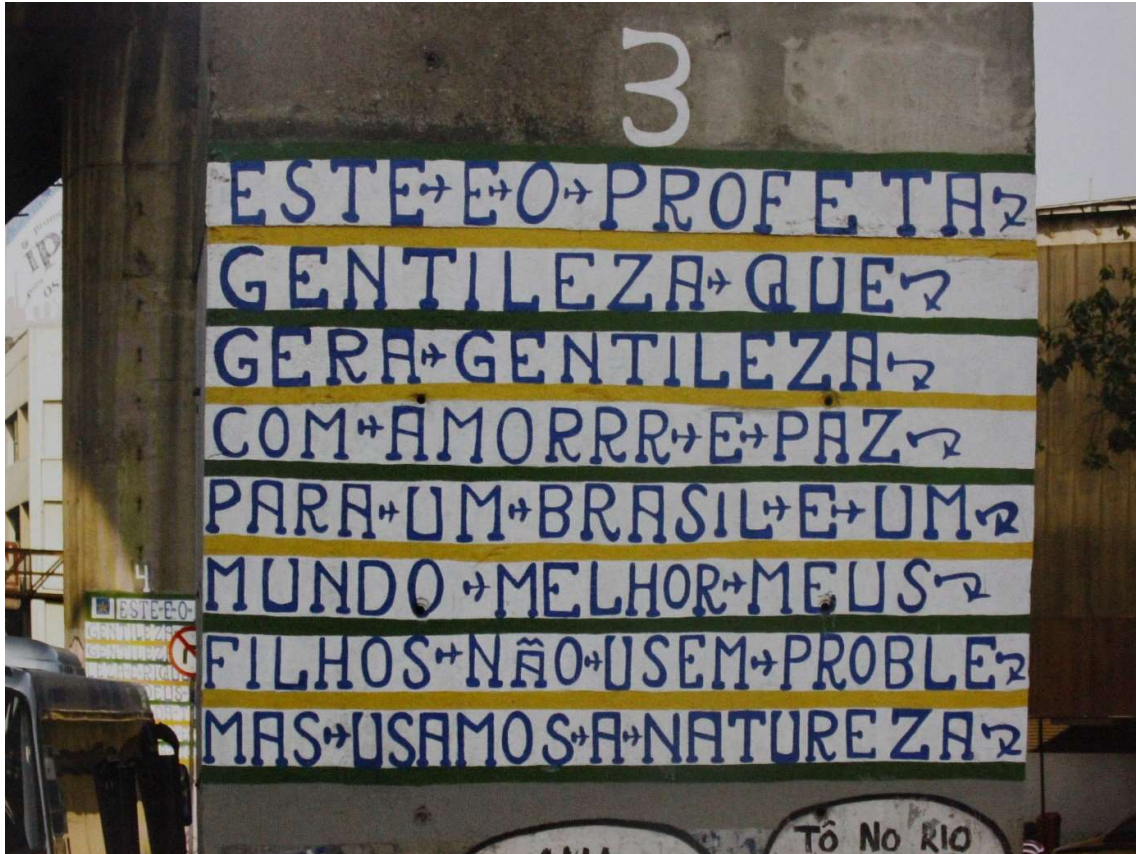 3
ESTE E O PROFETA
GENTILEZA QUE
GERA GENTILEZA
COM AMORRR E PAZ
PARA UM BRASIL E UM
MUNDO MELHOR MEUS
FILHOS NÃO USEM PROBLE
MAS USAMOS A NATUREZA
4
ESTE E O
GENTILEZA
TÔ NO RIO